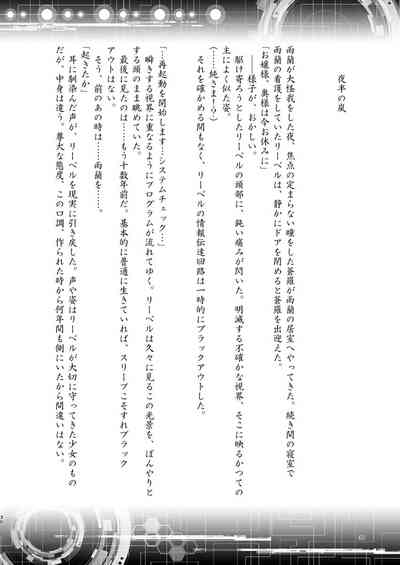 夜半の嵐
雨蘭が大怪我をした夜、焦点の定まらない瞳をした蒼羅が雨蘭の居室へやってきた。続き間の寝室で
雨蘭の看護をしていたリーベルは、静かにドアを閉めると蒼羅を出迎えた。
「お嬢様、奥様は今お休みに」
様子が、おかしい。
駆け寄ろうとしたリーベルの頭部に、鈍い痛みが閃いた。明滅する不確かな視界、そこに映るかつての
主によく似た姿。
（……純さま！？）
それを確かめる間もなく、リーベルの情報伝達回路は一時的にブラックアウトした。
「…再起動を開始します…システムチェック…」
瞬きする視界に重なるようにプログラムが流れてゆく。リーベルは久々に見るこの光景を、ぼんやりと
する頭のまま眺めていた。
最後に見たのは……もう十数年前だ。基本的に普通に生きていれば、スリープこそすれブラック
アウトはない。
そう、前のあの時は……雨蘭を……。
「起きたか」
耳に馴染んだ声が、リーベルを現実に引き戻した。声や姿はリーベルが大切に守ってきた少女のもの
だが、中身は違う。尊大な態度、この口調、作られた時から何年間も側にいたから間違いはない。